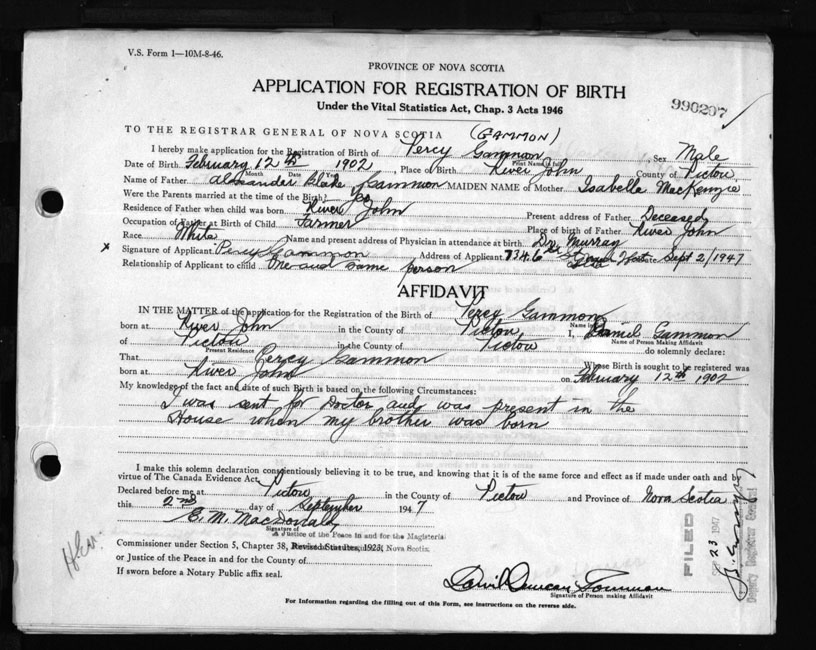 V.S. Form 1—10M-8-46.
PROVINCE OF NOVA SCOTIA
APPLICATION FOR REGISTRATION OF BIRTH
Under the Vital Statistics Act, Chap. 3 Acts 1946
990207
TO THE REGISTRAR GENERAL OF NOVA SCOTIA (GAMMON)
I hereby make application for the Registration of Birth of Percy Gammon Sex Male
Print Name in full
Date of Birth February 12th 1902, Place of Birth River John County of Pictou
Month Date Year
Name of Father Alexander Blake Gammon MAIDEN NAME of Mother Isabella MacKenzie
Were the Parents married at the time of the Birth? yes
Residence of Father when child was born River John Present address of Father Deceased
Occupation of Father at Birth of Child Farmer Place of birth of Father River John
Race White Name and present address of Physician in attendance at birth Dr. Murray
x Signature of Applicant Percy Gammon Address of Applicant 734.6 Date Sept 2/1947
Relationship of Applicant to child One and same person
AFFIDAVIT
IN THE MATTER of the application for the Registration of Birth of Percy Gammon
born at River John in the County of Pictou I, Daniel Gammon
Name of Person Making Affidavit
of Pictou in the County of Pictou do solemnly declare:
Present Residence
That Percy Gammon Whose Birth is sought to be registered was
born at River John on February 12th 1902
My knowledge of the fact and date of such Birth is based on the following Circumstances:
I was sent for Doctor and was present in the
House when my brother was born
I make this solemn declaration conscientiously believing it to be true, and knowing that it is of the same force and effect as if made under oath and by
virtue of The Canada Evidence Act.
Declared before me at Pictou in the County of Pictou and Province of Nova Scotia
this 2nd day of September 1947
E. M. MacDonald
Signature of
A Justice of the Peace in and for the Magisterial
Commissioner under Section 5, Chapter 38, Revised Statutes, 1923, Nova Scotia.
or Justice of the Peace in and for County of
If sworn before a Notary Public affix seal.
FILED
23 1947
Deputy Registrar General
Daniel Duncan Gammon
Signature of Person making Affidavit
For Information regarding the filling out of this Form, see instructions on the reverse side.